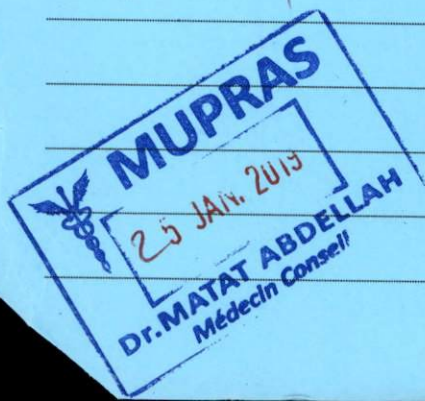 MUPRAS
25 JAN. 2019
Dr. MATAT ABDELLAH
Médecin Conseil